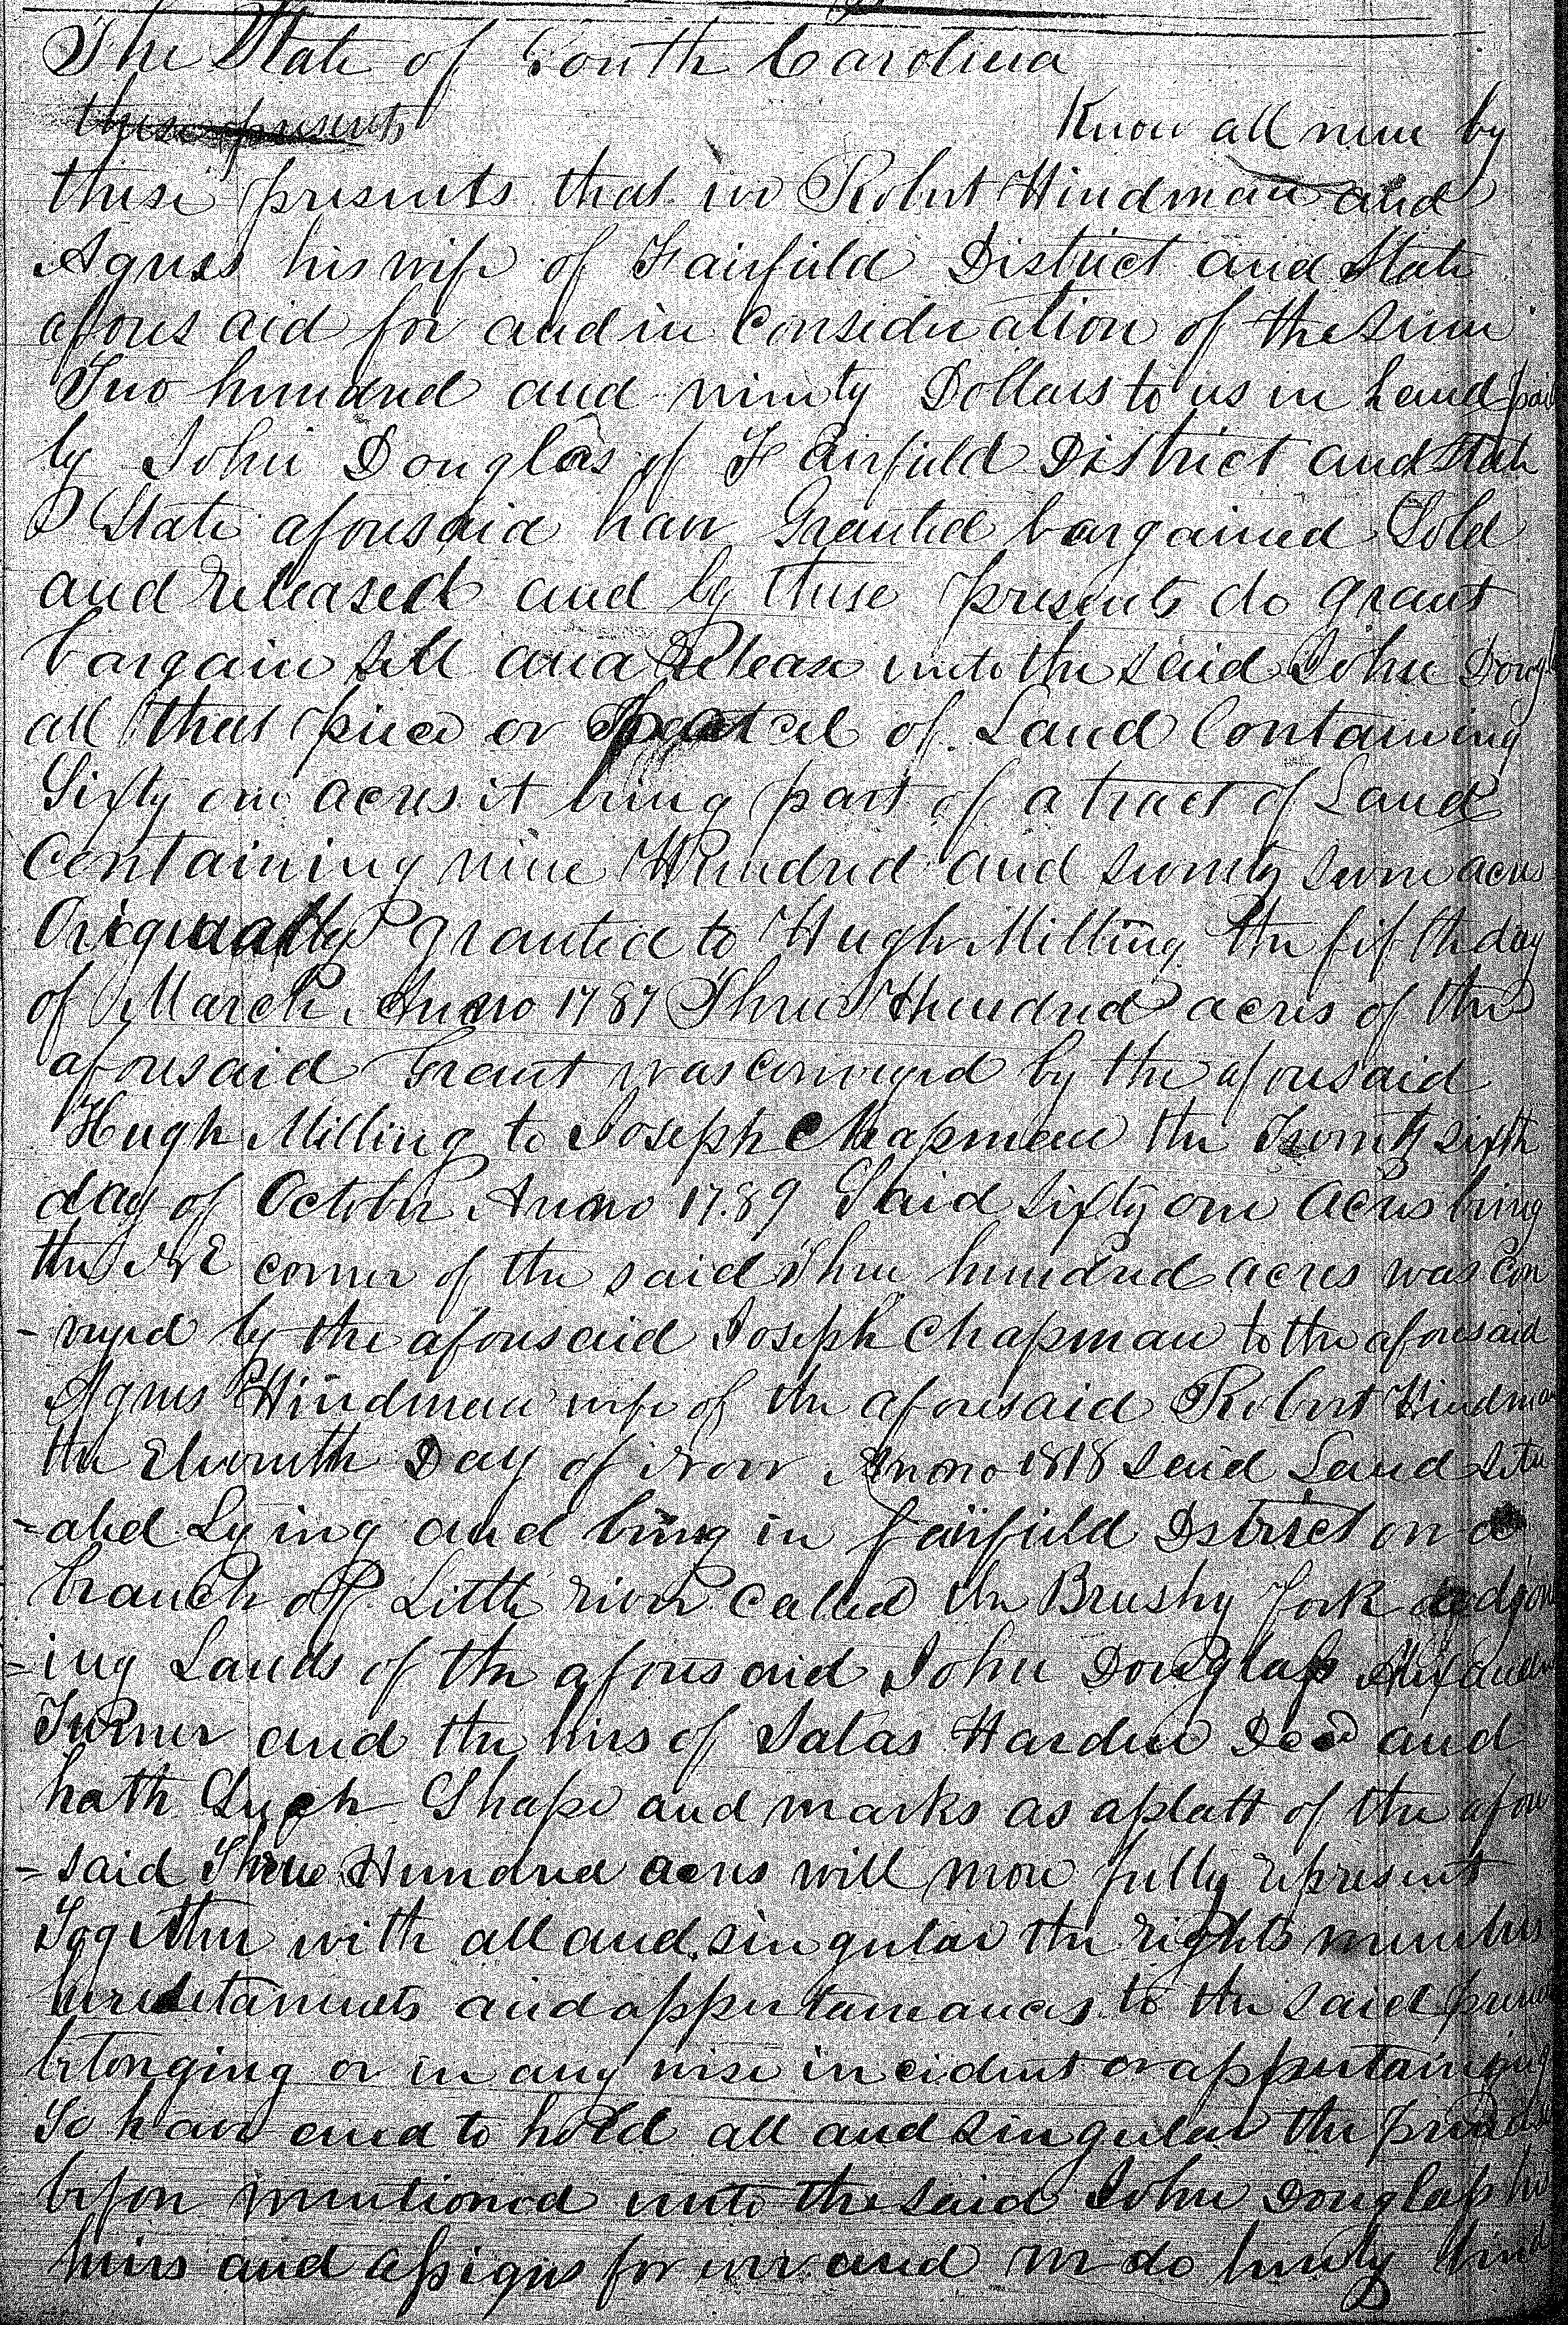 The State of South Carolina
these presents Know all men by
these presents that we Robert Hindman and
Agness his wife of Fairfield District and State
afores aid for and in consideration of the sum
Two hundred and ninety Dollars to us in hand paid
by John Douglas of Fairfield District and State
State aforesaid have Granted bargained Sold
and released and by these presents do grant
bargain sell and Release unto the said John Doug
all that piece or parcel of Land Containing
Sixty one acres it being part of a tract of Land
Containing nine Hundred and seventy seven acres
Originally granted to Hugh Milling the fifth day
of March Anno 1787 Three Hundred acres of the
aforesaid Grant was conveyed by the aforesaid
Hugh Milling to Joseph Chapman the Twenty sixth
day of October Anno 1789 Said sixty one acres being
the NE corner of the said Three hundred acres was con
-veyed by the aforesaid Joseph Chapman to the aforesaid
Agnes Hindman wife of the aforesaid Robert Hindman
the Eleventh Day of Novr Anno 1818 said Land situ
=ated Lying and being in fairfield Dstrict on a
branch off Little river called the Brushy fork adgoin
=ing Lands of the afores aid John Douglass Alexander
Turner and the hirs of Salas Harden Decd and
hath Such Shape and marks as a platt of the afore
=said Three Hundred acres will more fully represent
Together with all and singular the rights members
hereditaments and appurtanances to the said premi
belonging or in any wise incident or appertaining
To have and to hold all and singular the premises
before mentioned unto the said John Douglass his
heirs and assigns for ever and we do hereby bind